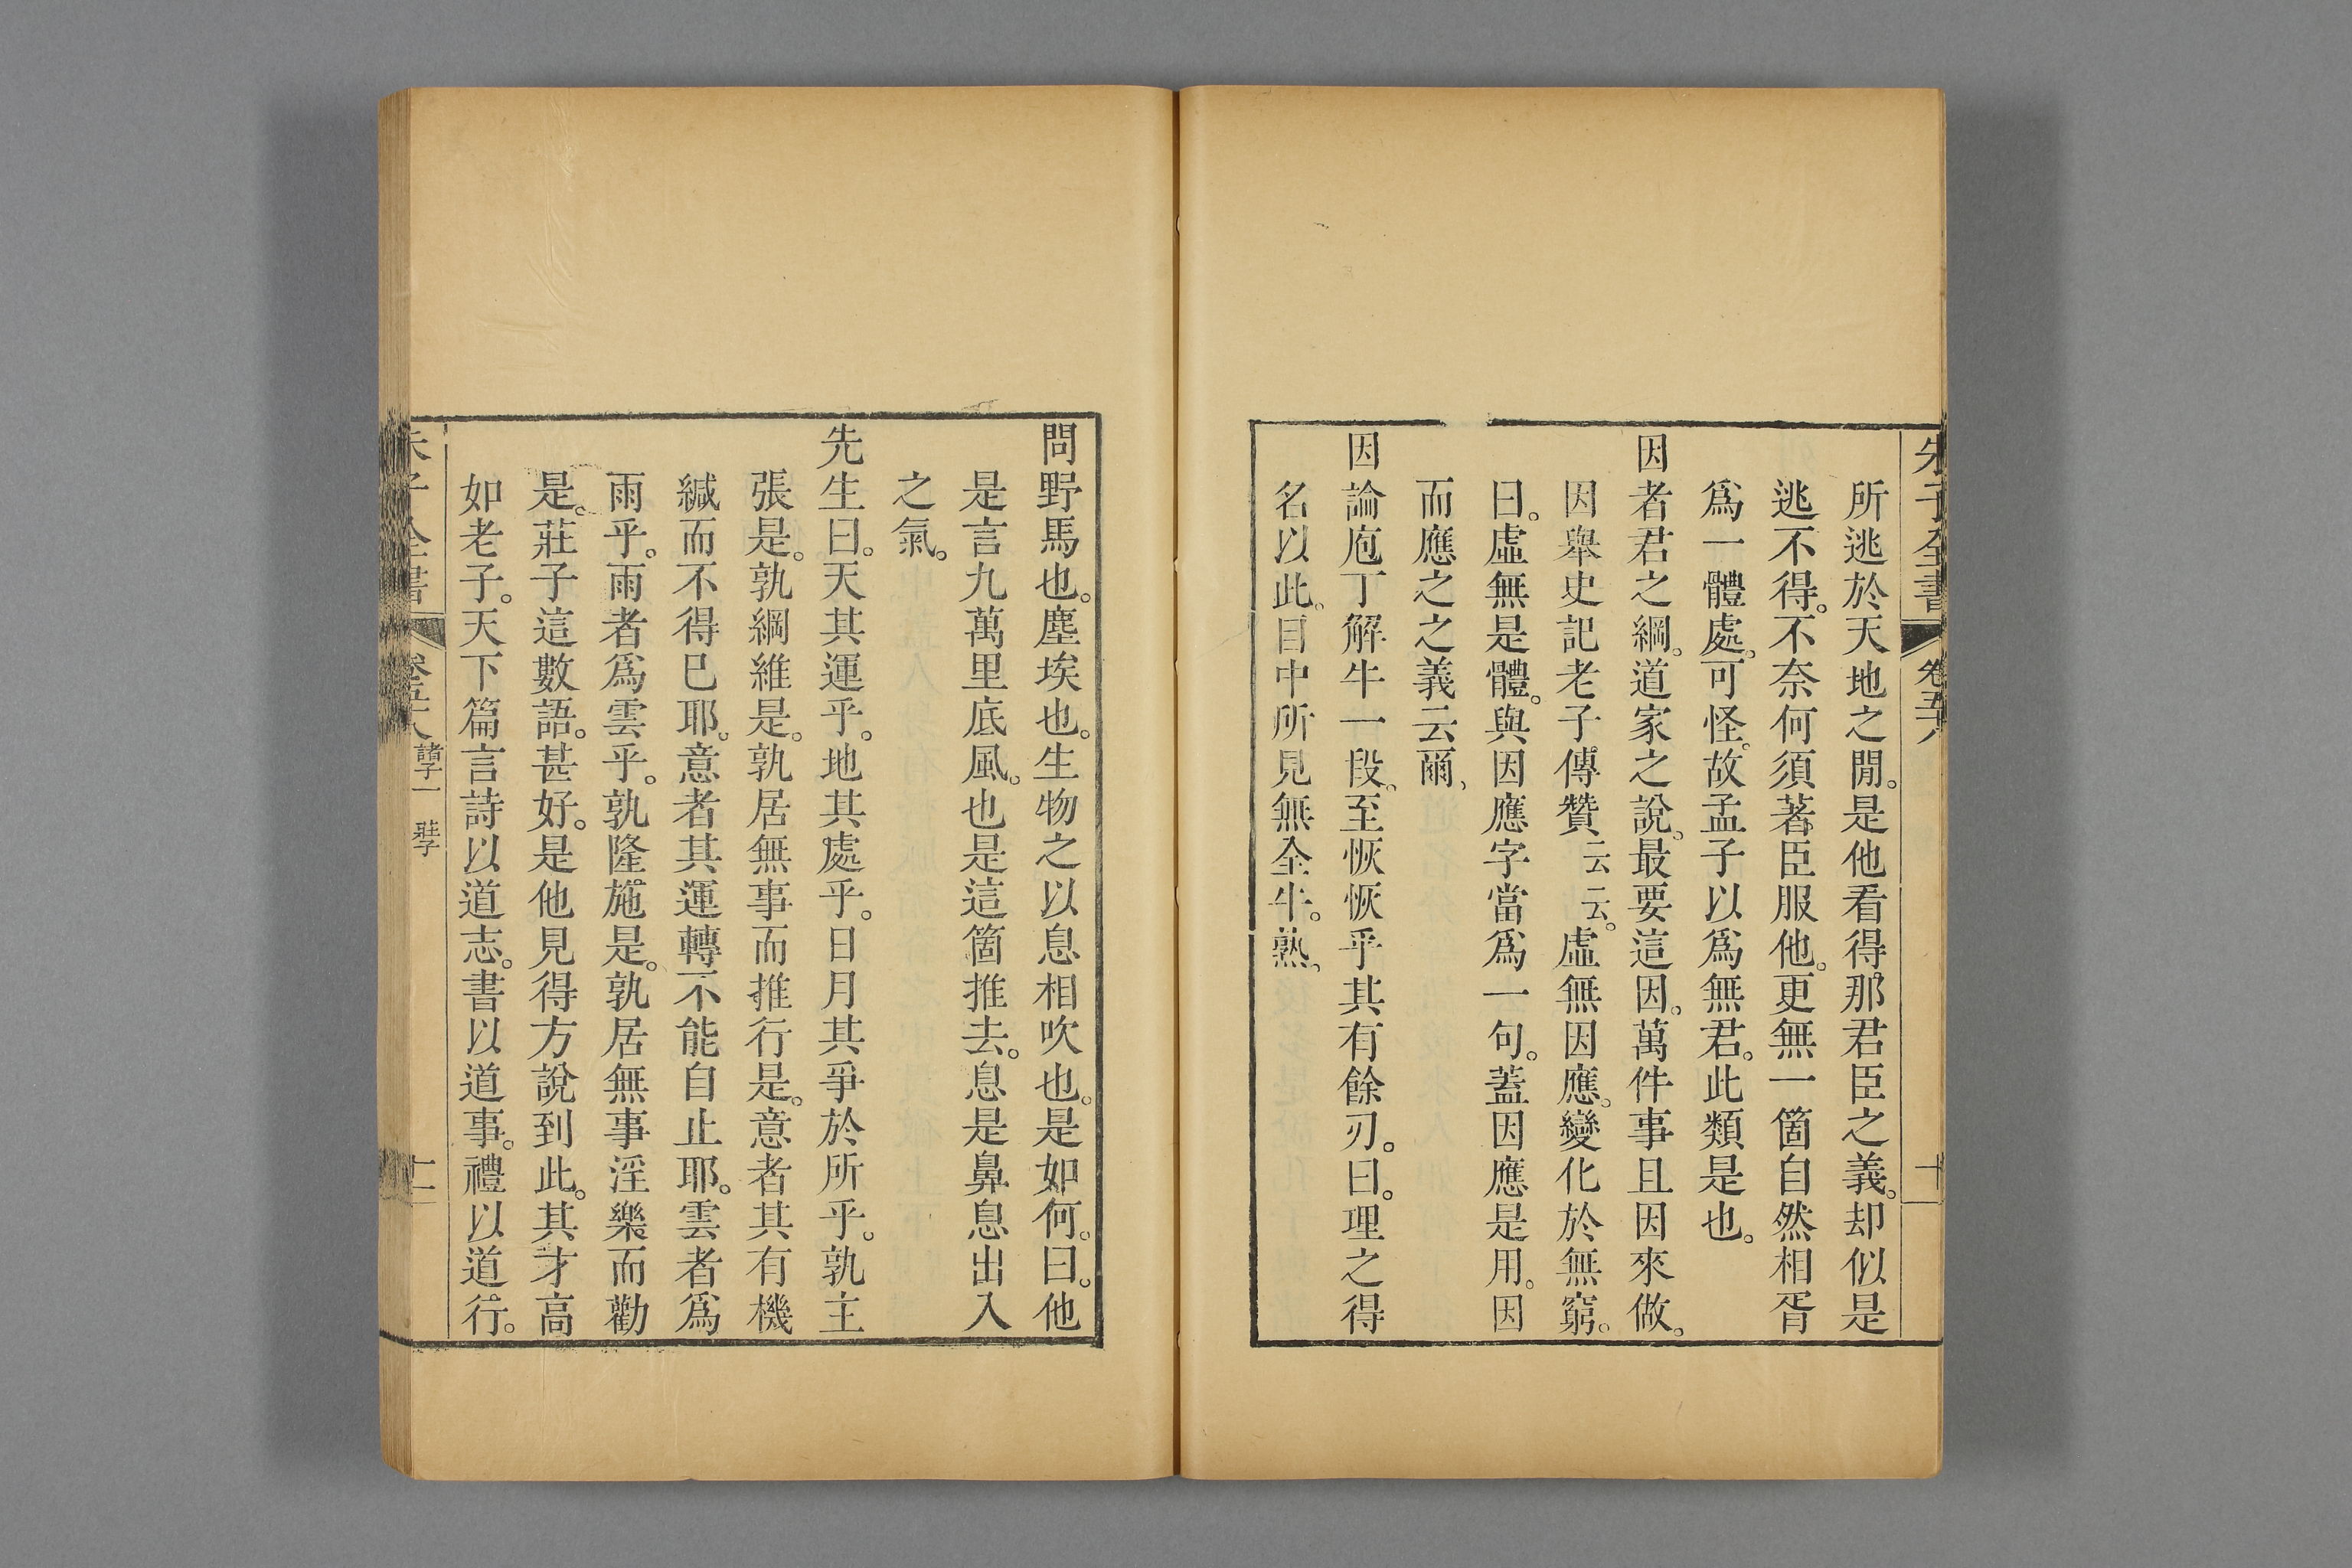 朱子全書 卷五十八 十
所逃於天地之閒。是他看得那君臣之義。却似是
逃不得。不奈何須著臣服他。更無一箇自然相胥
爲一體處。可怪。故孟子以爲無君。此類是也。
因者君之綱。道家之說。最要這因。萬件事且因來做。
因舉史記老子傳贊云云。虛無因應。變化於無窮。
曰。虛無是體。與因應字當爲一句。蓋因應是用。因
而應之之義云爾、
因論庖丁解牛一段、至恢恢乎其有餘刃。曰。理之得
名以此。目中所見無全牛。熟、
問野馬也。塵埃也。生物之以息相吹也。是如何。曰。他
是言九萬里底風。也是這箇推去。息是鼻息出入
之氣。
先生曰。天其運乎。地其處乎。日月其爭於所乎。孰主
張是。孰綱維是。孰居無事而推行是。意者其有機
緘而不得已耶。意者其運轉不能自止耶。雲者爲
雨乎。雨者爲雲乎。孰隆施是。孰居無事淫樂而勸
是。莊子這數語。甚好。是他見得方說到此。其才高
如老子。天下篇言詩以道志。書以道事。禮以道行。
朱子全書 卷五十八 諸子一 莊子 十一